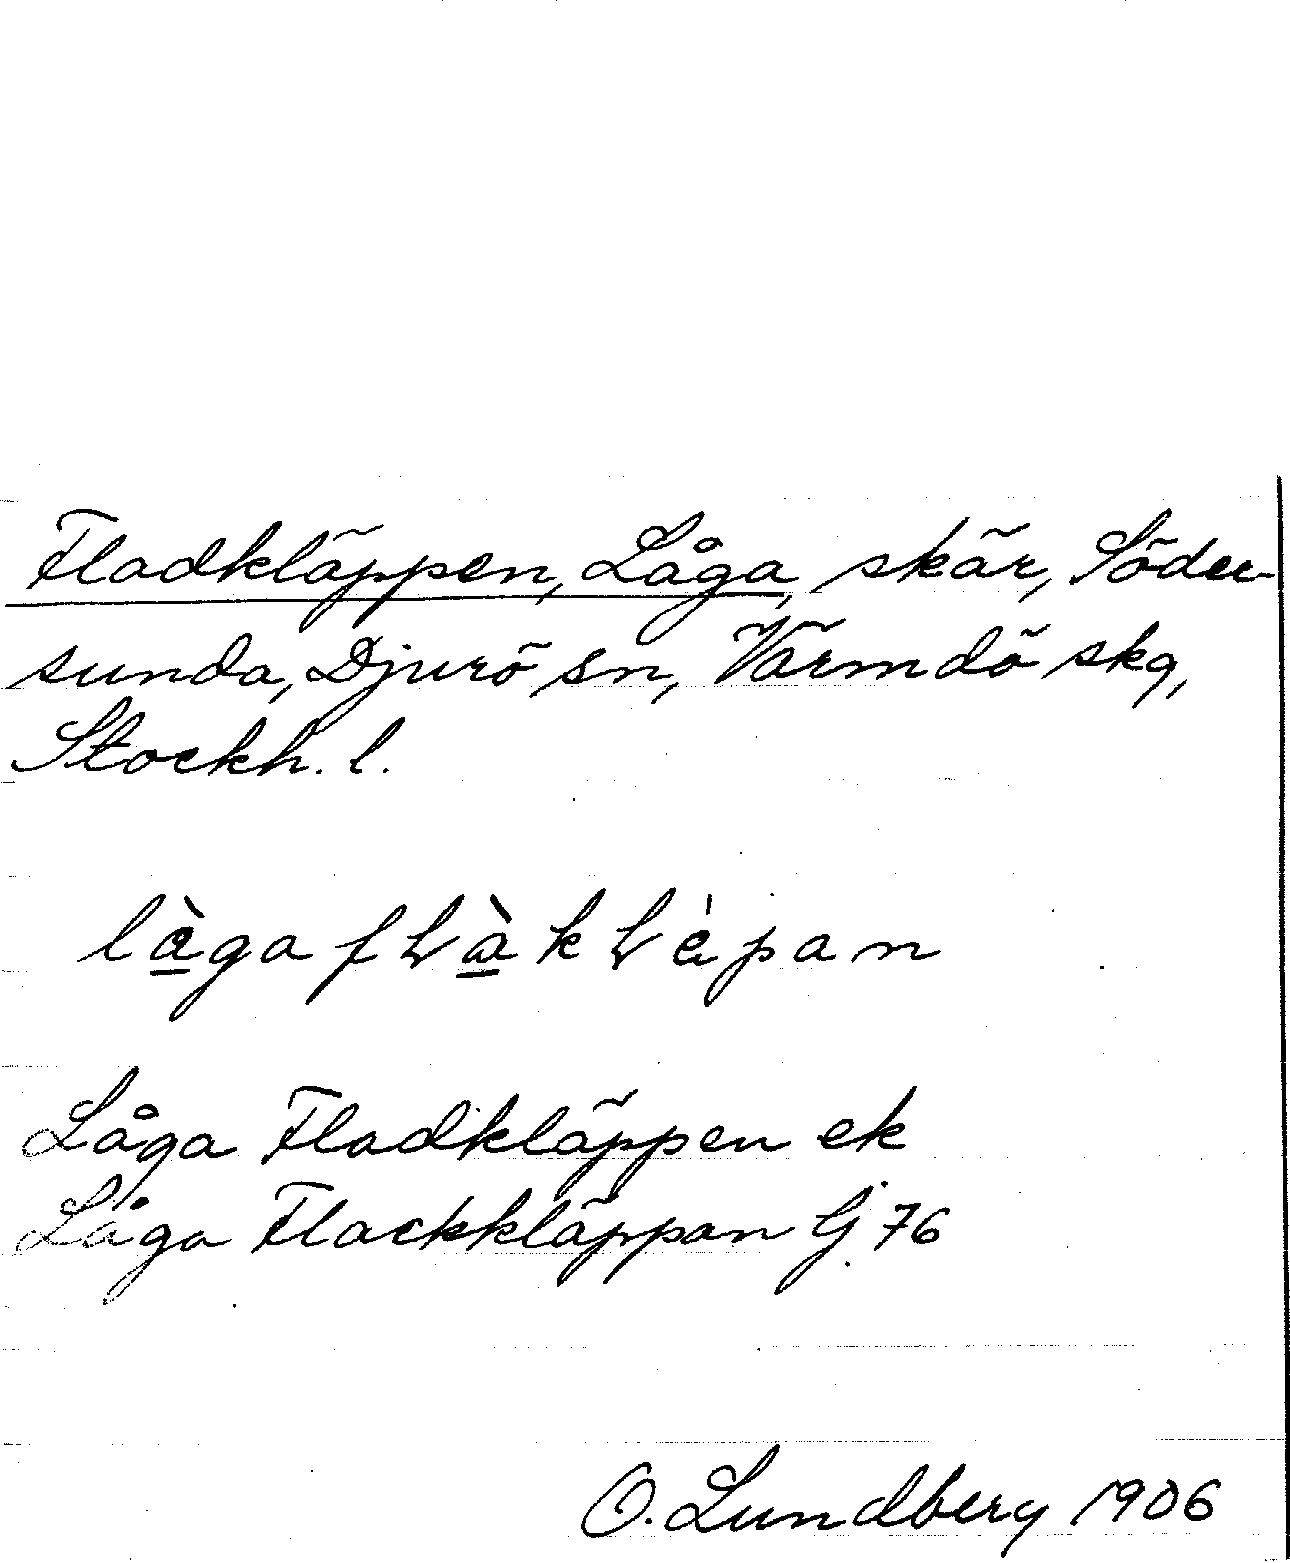 Fladkläppen, Låga, skär, Söder-
sunda, Djurö sn, Värmdö skg,
Stockh. l.
Låga Fladkläppen ek
Låga Flackkläppan Gj 76
O. Lundberg 1906